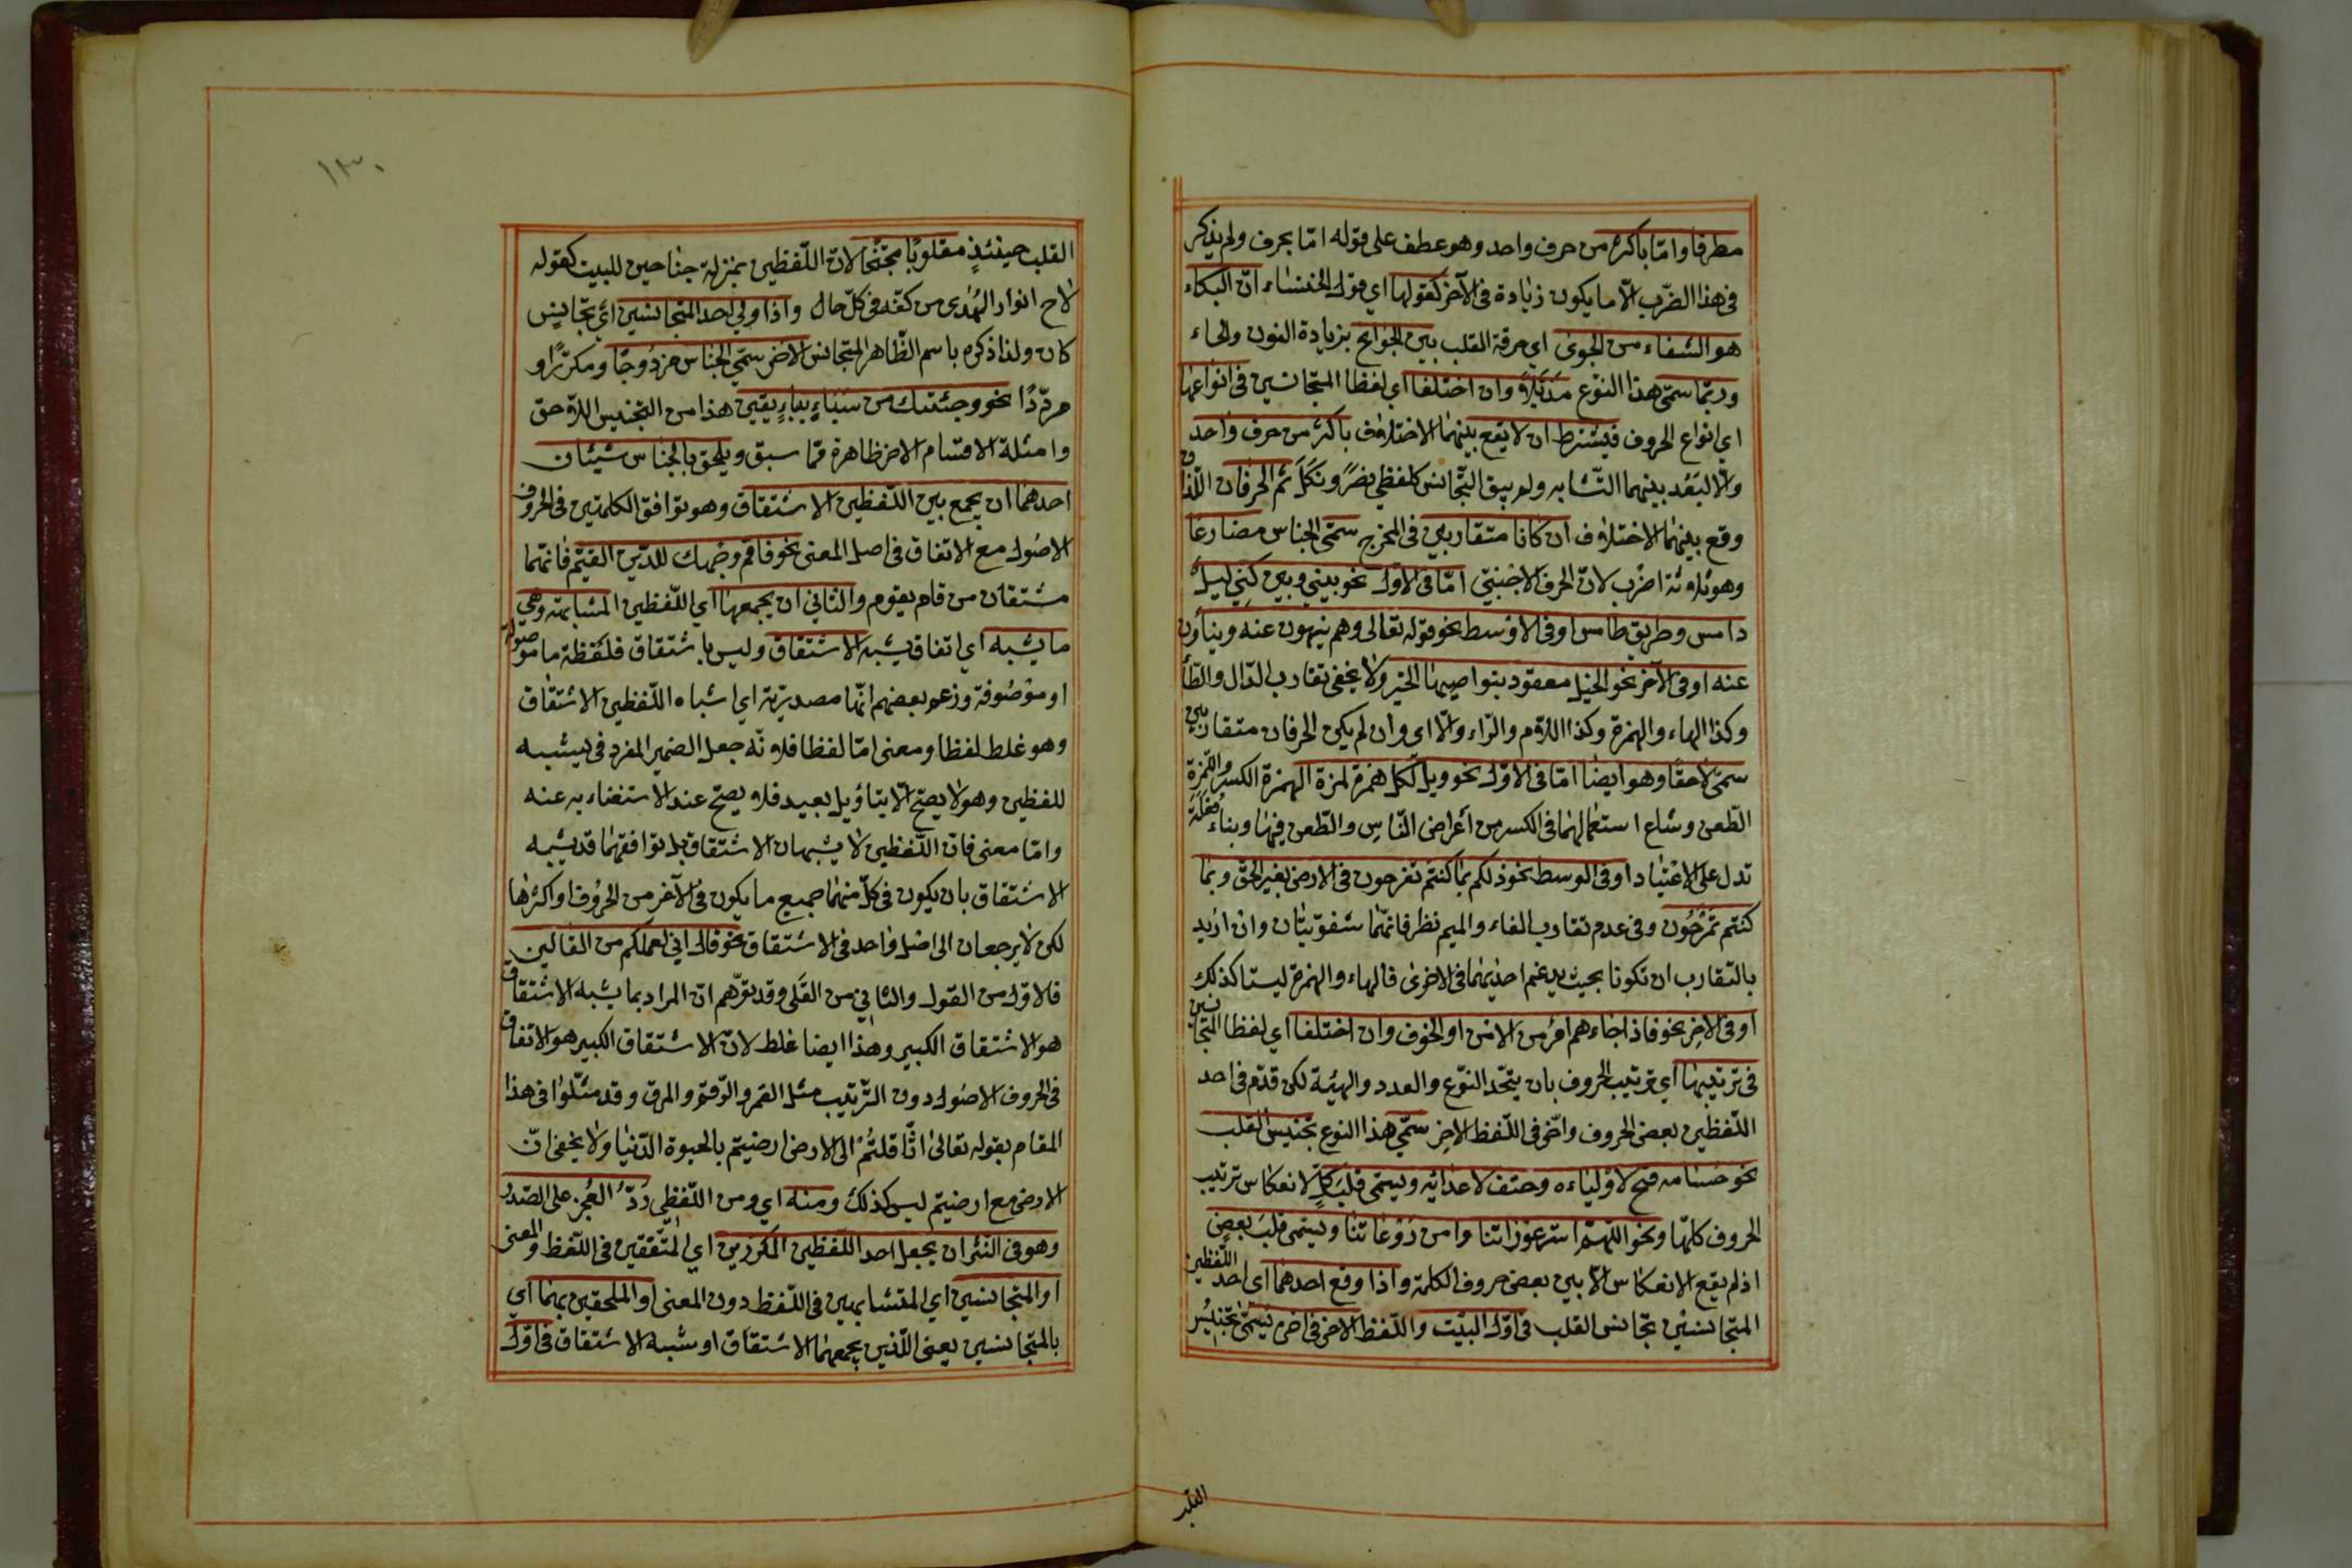 مطرفا وامّا باكثر من حرف واحد وهو عطف على قوله امّا بحرف ولم يذكر
فى هذا الضّرب الّا ما يكون زيادة فى الآخر كقولها اي قول الخنساء انّ البكاء
هو الشفاء من الجوى اي حرقة القلب بين الجوانح بزيادة النون والحاء
وربّما سمّى هذا النّوع مذيّلا وان اختلفا اي لفظا المتجانسين فى انواعها
اي انواع الحروف فيشترط ان لا يقع بينهما الاختلاف باكثر من حرف واحد
والّا لبعد بينهما التّشابه ولم يبق التّجانس كلفظي نصر ونكل ثم الحرفان اللّذان
وقع بينهما الاختلاف ان كانا متقاربين فى المخرج سمّى الجناس مضارعا
وهو ثلاثة اضرب لانّ الحرف الاجنبيّ امّا فى الاوّل نحو بيني وبين كنّي ليل
دامس وطريق طامس او فى الاوسط نحو قوله تعالى وهم ينهون عنه وينأون
عنه او فى الآخر نحو الخيل معقود بنواصيها الخير ولا يخفى تقارب الدّال والطّاء
وكذا الهاء والهمزة وكذا اللام والرّاء والّا اى وان لم يكن الحرفان متقاربين
سمّى لاحقا وهو ايضا امّا فى الاوّل نحو ويل لكل همزة لمزة الهمزة الكسر واللّمزة
الطّعن وشاع استعمالهما فى الكسر من أعراض النّاس والطّعن فيها وبناء فعلة
تدل على الاعتياد او فى الوسط نحو ذلكم بما كنتم تفرحون فى الارض بغير الحقّ وبما
كنتم تمرحون وفى عدم تقارب الفاء والميم نظر فانّهما شفويّتان وان اريد
بالتقارب ان تكونا بحيث يدغم احديهما فى الاخرى فالهاء والهمزة ليستا كذلك
او فى الاخر نحو فاذا جاءهم امر من الامن او الخوف وان اختلفا اي لفظا المتجانسين
فى ترتيبها اي ترتيب الحروف بان يتّحد النّوع والعدد والهيئة لكن قدّم فى احد
اللّفظين بعض الحروف واخّر فى اللّفظ الاخر سمّي هذا النوع تجنيس القلب
نحو حسامه فتح لاوليائه وحتف لاعدائه ويسمى قلب كلّ لانعكاس ترتيب
الحروف كلّها ونحو اللّهمّ استر عوراتنا وامن روعاتنا ويسمى قلب بعض
اذ لم يقع الانعكاس الّا بين بعض حروف الكلمة واذا وقع احدهما اى احد اللّفظين
المتجانسين تجانس القلب فى اوّل البيت واللّفظ الاخر فى اخره يسمّى تجنيس
القلب
١٣٠
القلب حينئذ مقلوبا مجنّحا لانّ اللّفظين بمنزلة جناحين للبيت كقوله
لاح انوار الهدى من كفّه فى كلّ حال واذا ولي احد المتجانسين اي تجانس
كان ولذا ذكره باسم الظّاهر المتجانس الاخر سمّي الجناس مزدوجا ومكرّرا و
مردّدا نحو وجئتك من سباء بنباء يقين هذا من التجنيس اللاحق
وامثلة الاقسام الاخر ظاهرة ممّا سبق ويلحق بالجناس شيئان
احدهما ان يجمع بين اللّفظين الاشتقاق وهو توافق الكلمتين فى الحروف
الاصول مع الاتفاق فى اصل المعنى نحو فاقم وجهك للدّين القيّم فانّهما
مشتقان من قام يقوم والثاني ان يجمعهما اي اللّفظين المشابهة وهي
ما يشبه اي اتفاق يشبه الاشتقاق وليس باشتقاق فلفظة ما موصولة
او موصوفة وزعم بعضهم انّها مصدريّة اي اشباه اللّفظين الاشتقاق
وهو غلط لفظا ومعنى امّا لفظا فلانّه جعل الضمير المفرد فى يشبه
للفظين وهو لا يصحّ الّا بتاؤيل بعيد فلا يصحّ عند الاستغناء به عنه
وامّا معنى فانّ اللّفظين لا يشبهان الاشتقاق بل توافقهما قد يشبه
الاشتقاق بان يكون فى كلّ منهما جميع ما يكون فى الآخر من الحروف او اكثرها
لكن لا يرجعان الى اصل واحد فى الاشتقاق نحو قال اني لعملكم من القالين
فالاوّل من القول والثاني من القلى وقد توهّم انّ المراد بما يشبه الاشتقاق
هو الاشتقاق الكبير وهذا ايضا غلط لانّ الاشتقاق الكبير هو الاتفاق
فى الحروف الاصول دون التّرتيب مثل القمر والرّقم والمرق وقد مثّلوا فى هذا
المقام بقوله تعالى اثّاقلتم الى الارض ارضيتم بالحيوة الدّنيا ولا يخفى انّ
الارض مع ارضيتم ليس كذلك ومنه اي ومن اللّفظي ردّ العجز على الصّدر
وهو فى النثر ان يجعل احد اللّفظين المكرّرين اي المتّفقين فى اللّفظ والمعنى
او المتجانسين اي المتشابهين فى اللّفظ دون المعنى او الملحقين بهما اي
بالمتجانسين يعنى اللّذين يجمعهما الاشتقاق او شبه الاشتقاق فى اوّل